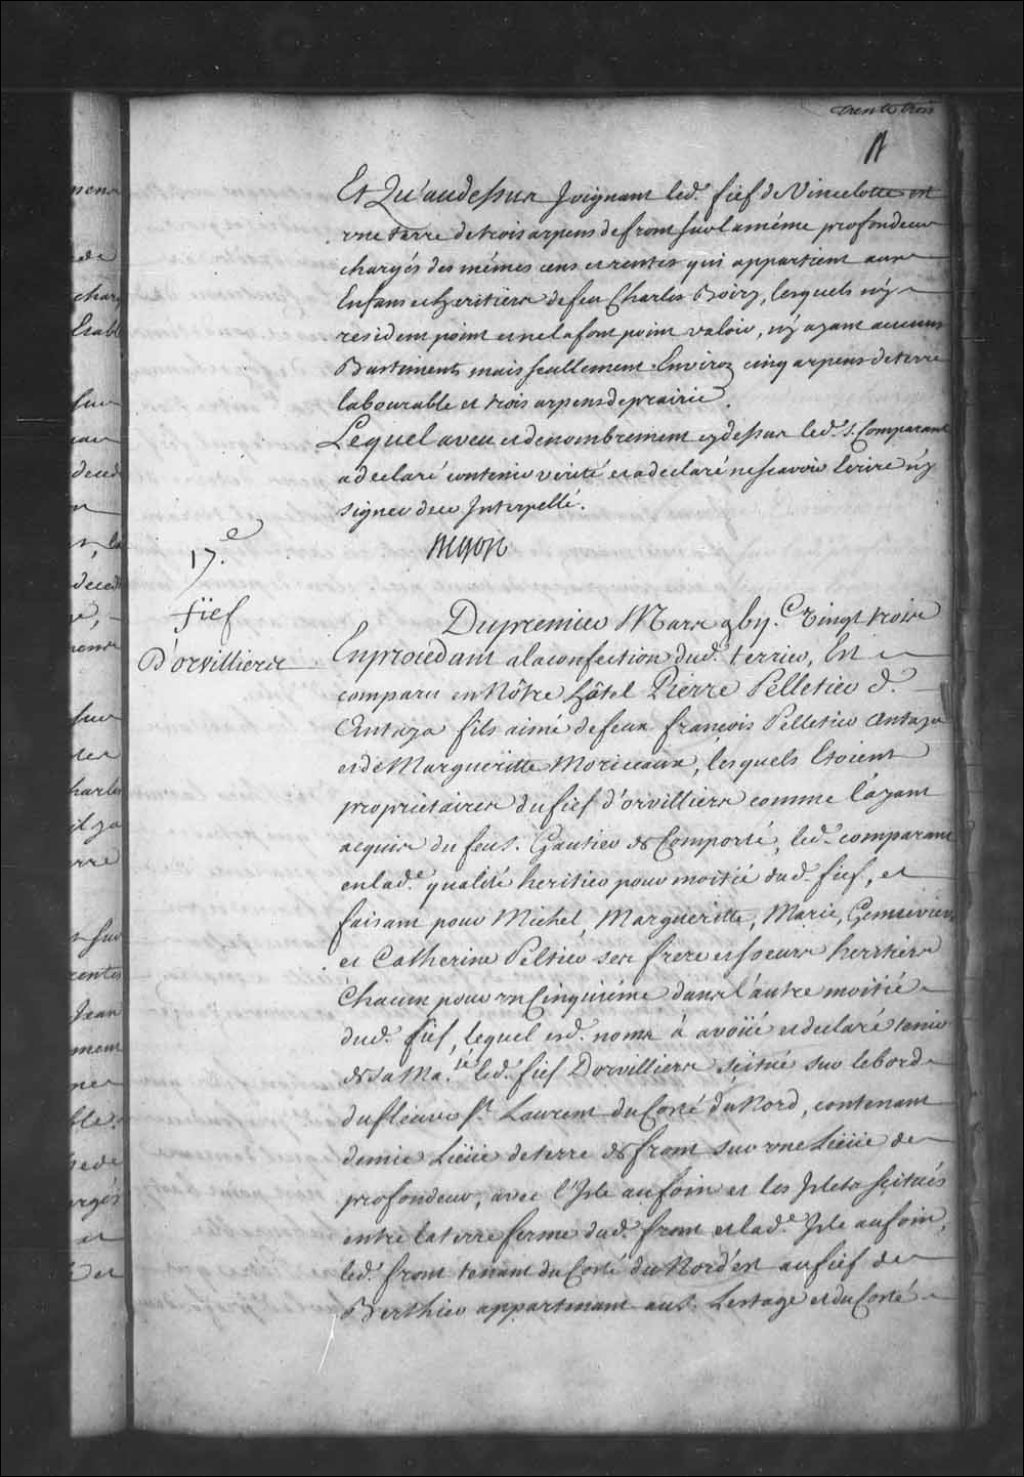 trente trois
Et Qu'audessus Joignant led. fief de Vincelotte est
une terre de trois arpens de front sur la même profondeur
chargés des mêmes cens et rentes qui appartient aux
Enfans et heritiers de feu Charles Boiry, lesquels n'y
resident point et ne la font point valoir, n'y ayant aucuns
Bastiments mais seullement Environ cinq arpens de terre
labourable et trois arpens de prairie.
Lequel aveu et denombrement cy dessus led. S. Comparant
a declaré contenir verité et a declaré ne scavoir Ecrire n'y
signer de ce Interpellé.
17.e
fief
D'orvilliers
Du premier Mars vingt trois
En procedant a la confection dud. terrier, Est
comparu en Nôtre hôtel Pierre Pelletier d.
Antaya fils aisné de feux françois Pelletier Antaya
et de Margueritte Moriceaux, lesquels Etoient
proprietaires du fief d'orvilliers comme l'ayant
acquis du feu S. Gautier de Comporté, led. comparant
en lad.e qualité heritier pour moitié dud. fief, et
faisant pour Michel, Margueritte, Marie, Geneviève
et Catherine Peltier ses frere et soeurs heritiers
Chacun pour un Cinquiéme dans l'autre moitié
dud. fief, lequel esd. noms à avoüé et declaré tenir
de sa Ma.té led. fief Dorvilliers scitué sur le bord
du fleuve St. Laurent du Costé du Nord, contenant
demie Lieüe de terre de front sur une Lieüe de
profondeur, avec l'Isle au foin et les Islets scitués
entre la terre ferme dud. front et lad.e Isle au foin,
led. front tenant du Costé du Nord'est au fief de
Berthier appartenant au S. Lestage et du Costé